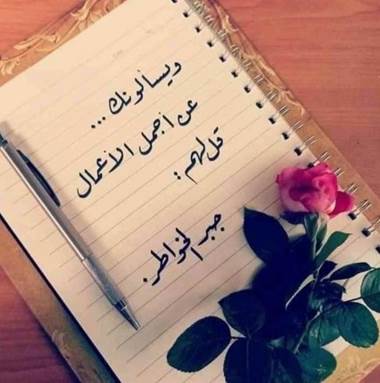 ويسألونك...
عن أجمل الأعمال
قل لهم:
جبر الخواطر.